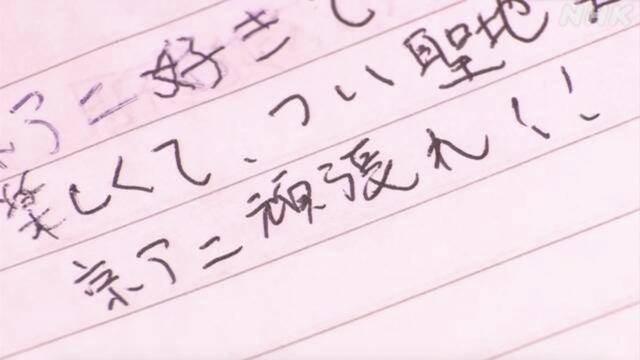 NHK
アニ好きで
楽しくて、つい聖地
京アニ頑張れ!!